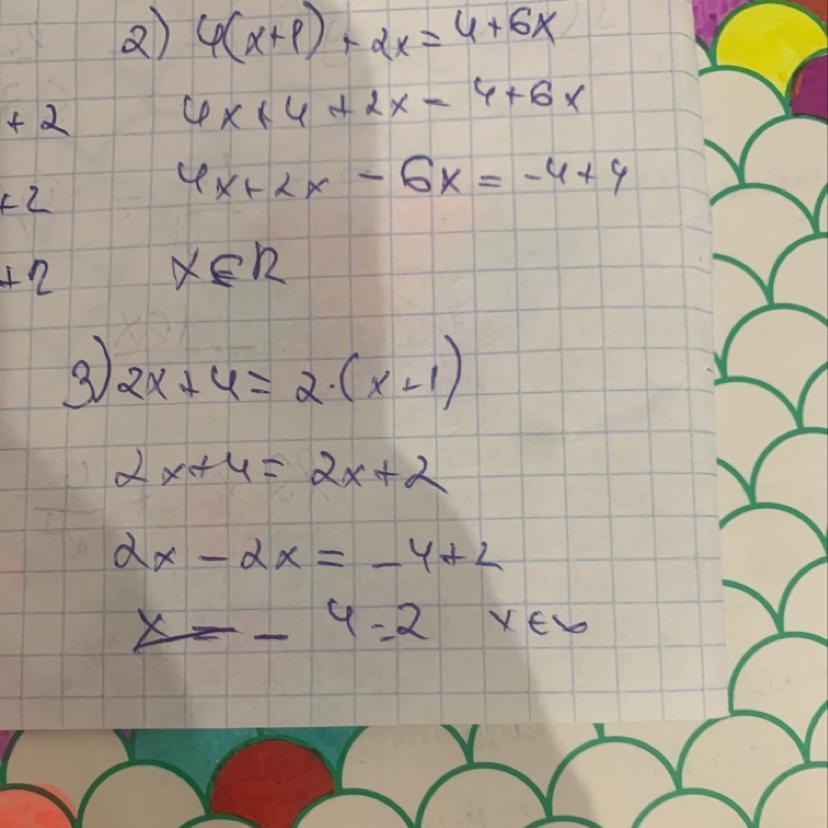 2) 4(x+1) + 2x = 4+6x
+ 2
4x+4 + 2x = 4+6x
+2
4x+2x - 6x = -4+4
+2
x ∈ R
3) 2x+4 = 2·(x+1)
2x+4 = 2x+2
2x - 2x = -4+2
4-2 x ∈ ∞